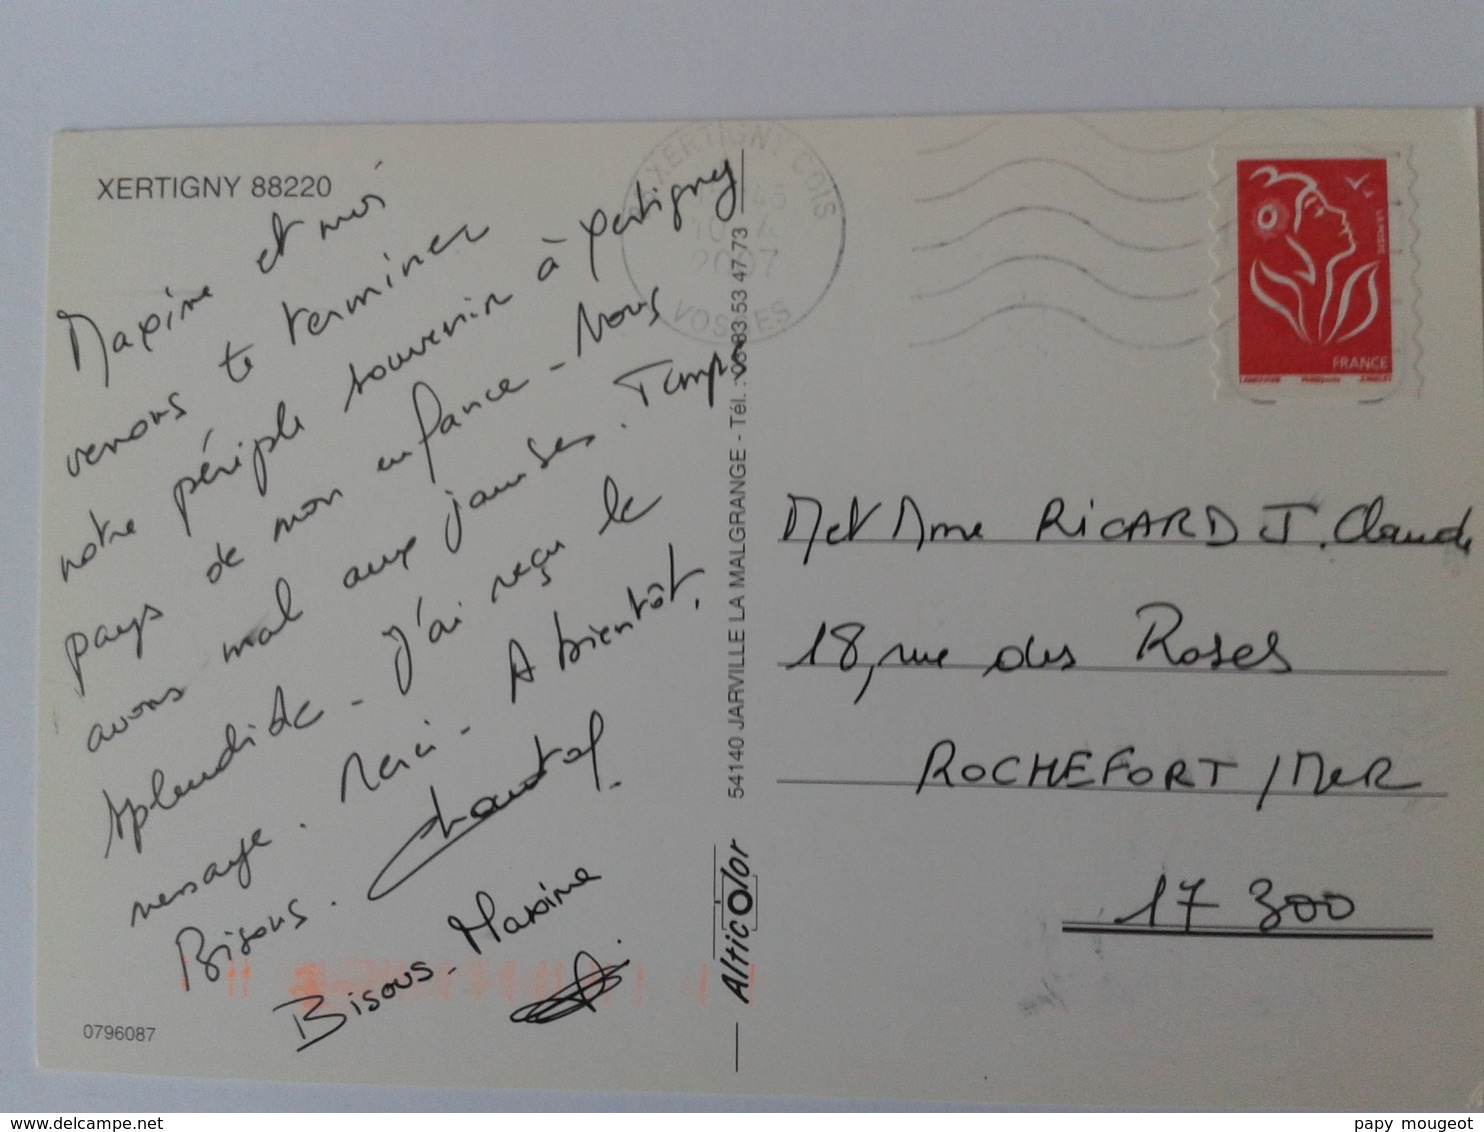 XERTIGNY 88220
Maxime et moi
venons de terminer
notre périple souvenir à Xertigny
pays de mon enfance - Nous
avons mal aux jambes. Temps
splendide - J'ai reçu le
message. Merci - A bientôt.
Bisous. Chantal.
Bisous - Maxime
0796087
XERTIGNY CDIS
2007
VOSGES
54140 JARVILLE LA MALGRANGE - Tél. : 03 83 53 47 73
AlticOlor
LA POSTE
FRANCE
M et Mme RICARD J. Claude
18, rue des Roses
ROCHEFORT / MER
17 300
papy mougeot